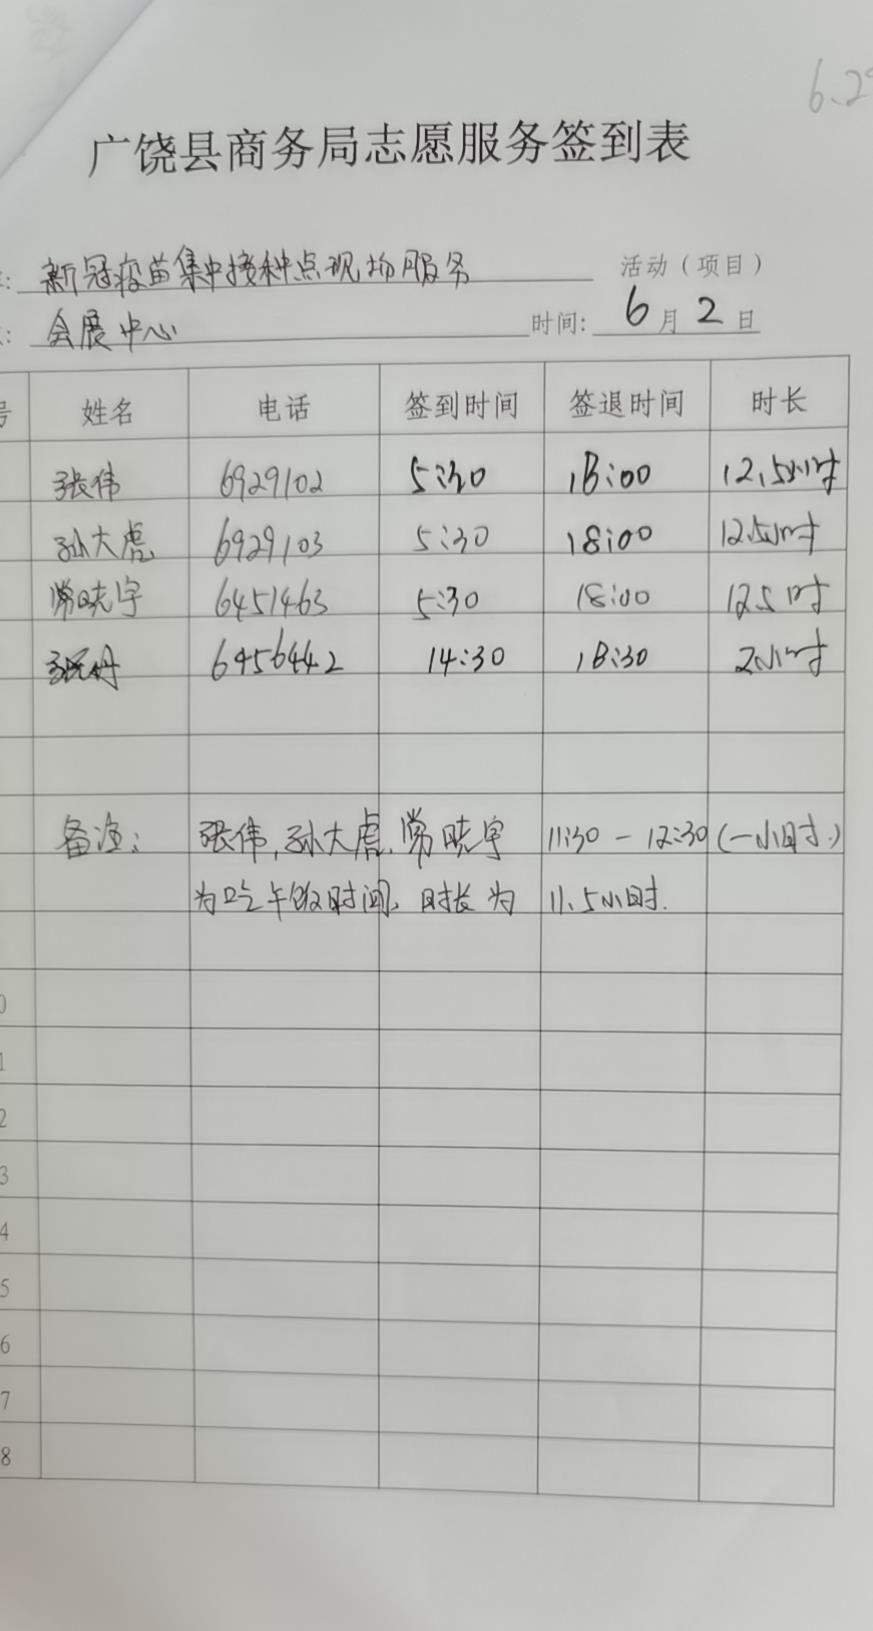 6.2
广饶县商务局志愿服务签到表
: 新冠疫苗集中接种点现场服务 活动（项目）
: 会展中心 时间: 6月2日
号 姓名 电话 签到时间 签退时间 时长
张伟 6929102 5:30 18:00 12.5小时
孙大虎 6929103 5:30 18:00 12.5小时
常晓宇 6451463 5:30 18:00 12.5小时
6456442 14:30 18:30 2小时
备注: 张伟,孙大虎,常晓宇 11:30-12:30(一小时.)
为吃午饭时间,时长为 11.5小时.
0
1
2
3
4
5
6
7
8